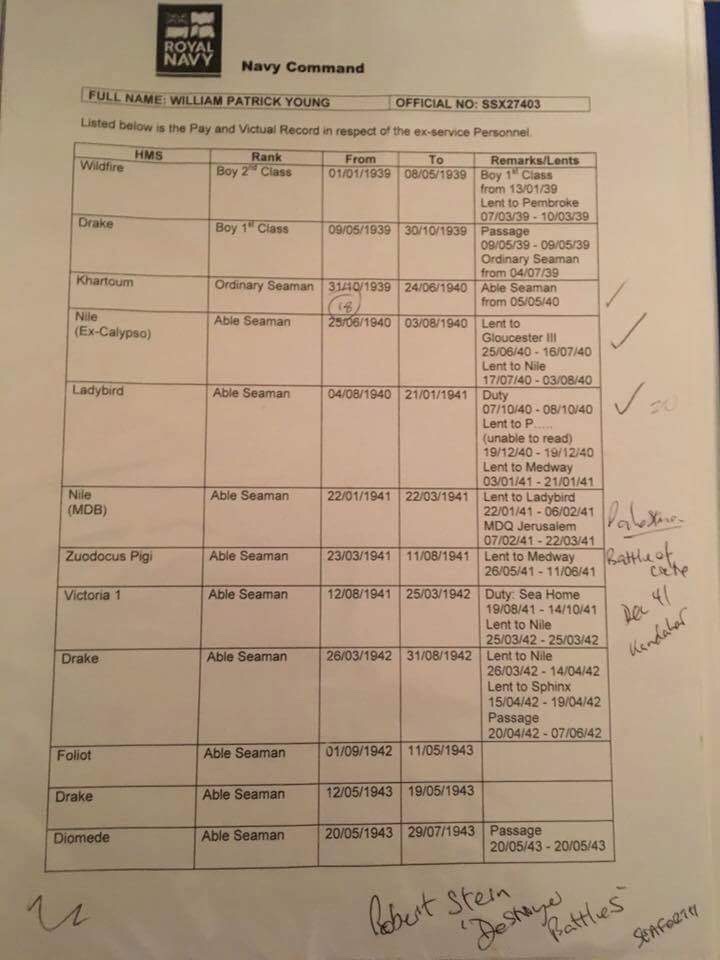 ROYAL
NAVY
Navy Command
FULL NAME: WILLIAM PATRICK YOUNG OFFICIAL NO: SSX27403
Listed below is the Pay and Victual Record in respect of the ex-service Personnel.
HMS Rank From To Remarks/Lents
Wildfire Boy 2nd Class 01/01/1939 08/05/1939 Boy 1st Class
from 13/01/39
Lent to Pembroke
07/03/39 - 10/03/39
Drake Boy 1st Class 09/05/1939 30/10/1939 Passage
09/05/39 - 09/05/39
Ordinary Seaman
from 04/07/39
Khartoum Ordinary Seaman 31/10/1939 24/06/1940 Able Seaman
from 05/05/40
18
Nile Able Seaman 25/06/1940 03/08/1940 Lent to
(Ex-Calypso) Gloucester III
25/06/40 - 16/07/40
Lent to Nile
17/07/40 - 03/08/40
Ladybird Able Seaman 04/08/1940 21/01/1941 Duty
07/10/40 - 08/10/40
Lent to P.....
(unable to read)
19/12/40 - 19/12/40
Lent to Medway
03/01/41 - 21/01/41
Nile Able Seaman 22/01/1941 22/03/1941 Lent to Ladybird
(MDB) 22/01/41 - 06/02/41
MDQ Jerusalem
07/02/41 - 22/03/41
Palestine
Zuodocus Pigi Able Seaman 23/03/1941 11/08/1941 Lent to Medway
26/05/41 - 11/06/41
Battle of
Crete
Victoria 1 Able Seaman 12/08/1941 25/03/1942 Duty: Sea Home
19/08/41 - 14/10/41
Lent to Nile
25/03/42 - 25/03/42
Dec 41
Kandahar
Drake Able Seaman 26/03/1942 31/08/1942 Lent to Nile
26/03/42 - 14/04/42
Lent to Sphinx
15/04/42 - 19/04/42
Passage
20/04/42 - 07/06/42
Foliot Able Seaman 01/09/1942 11/05/1943
Drake Able Seaman 12/05/1943 19/05/1943
Diomede Able Seaman 20/05/1943 29/07/1943 Passage
20/05/43 - 20/05/43
Robert Stern
'Destroyer
Battles"
SEAFORTH